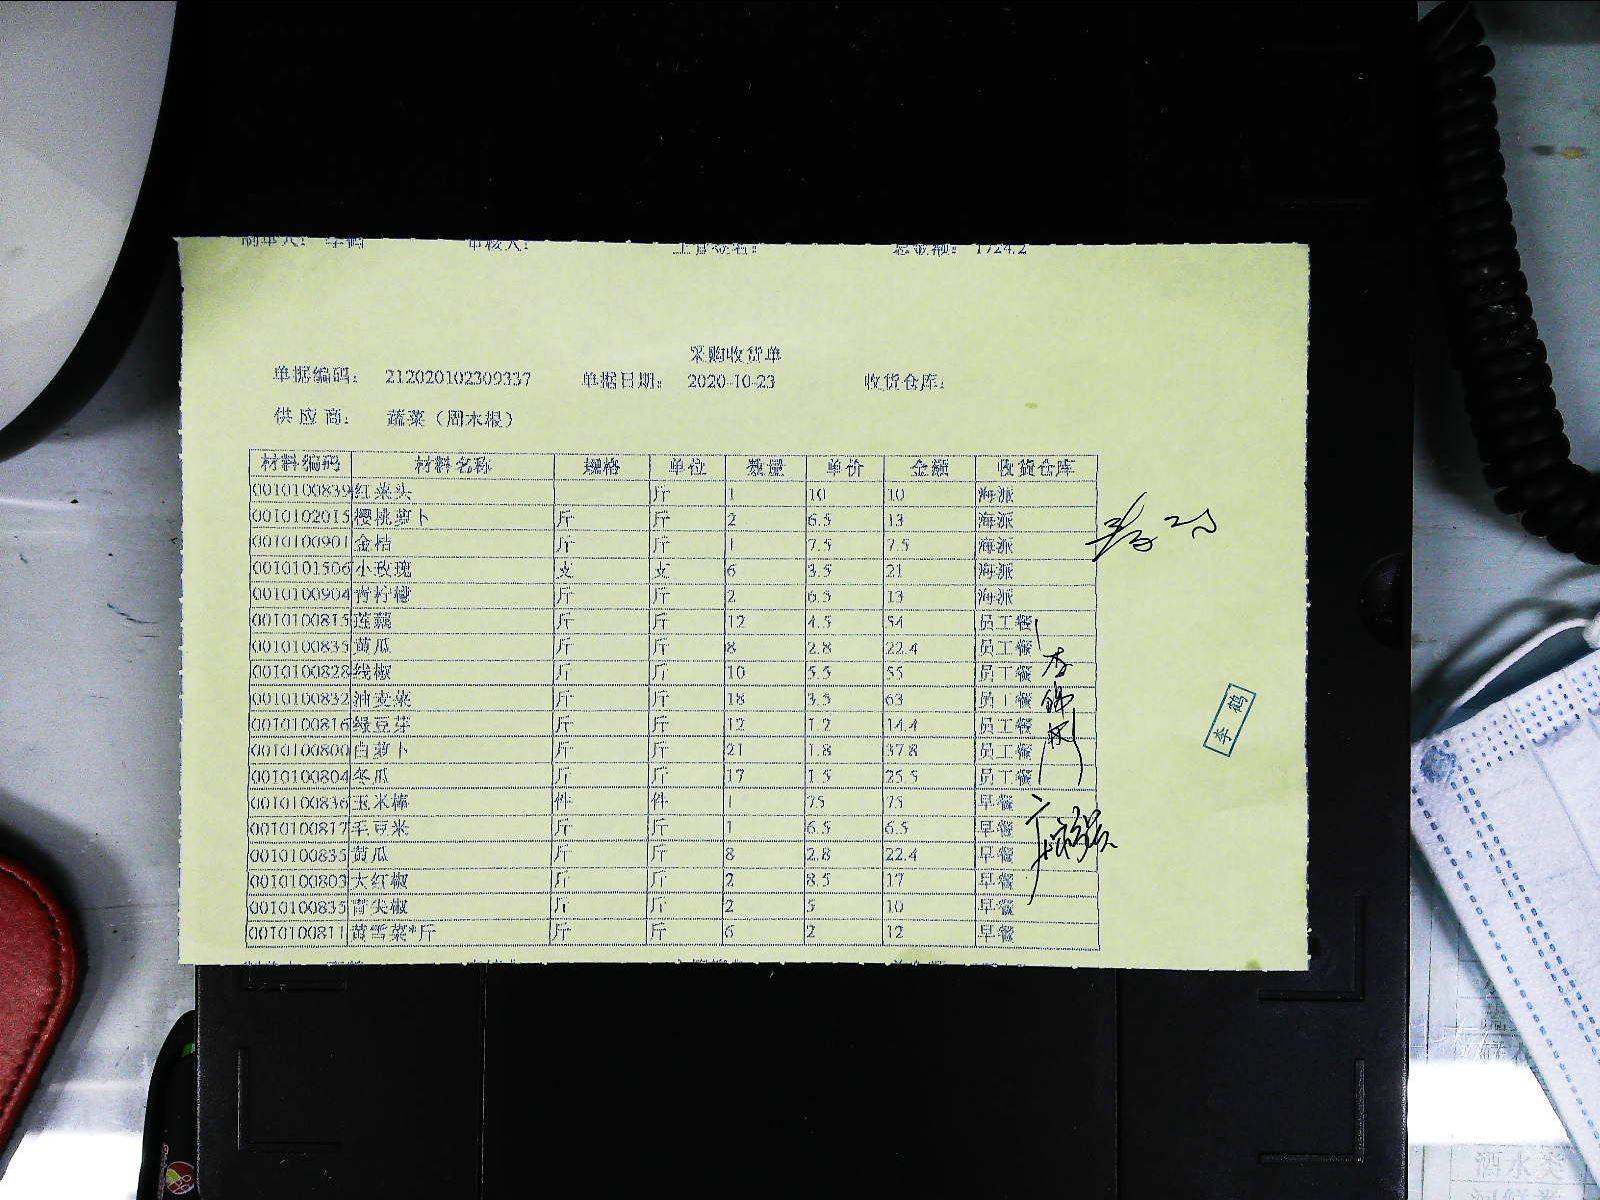 制单人： 李鹤 审核人： 主管签名： 总金额： 1724.2
采购收货单
单据编码： 212020102309337 单据日期： 2020-10-23 收货仓库：
供 应 商： 蔬菜（周木根）
材料编码 材料名称 规格 单位 数量 单价 金额 收货仓库
0010100839 红菜头 斤 1 10 10 海派
0010102015 樱桃萝卜 斤 斤 2 6.5 13 海派
0010100901 金桔 斤 斤 1 7.5 7.5 海派
0010101506 小玫瑰 支 支 6 3.5 21 海派
0010100904 青柠檬 斤 斤 2 6.5 13 海派
0010100815 莲藕 斤 斤 12 4.5 54 员工餐
0010100835 黄瓜 斤 斤 8 2.8 22.4 员工餐
0010100828 线椒 斤 斤 10 5.5 55 员工餐
0010100832 油麦菜 斤 斤 18 3.5 63 员工餐
0010100816 绿豆芽 斤 斤 12 1.2 14.4 员工餐
0010100800 白萝卜 斤 斤 21 1.8 37.8 员工餐
0010100804 冬瓜 斤 斤 17 1.5 25.5 员工餐
0010100836 玉米棒 件 件 1 75 75 早餐
0010100817 毛豆米 斤 斤 1 6.5 6.5 早餐
0010100835 黄瓜 斤 斤 8 2.8 22.4 早餐
0010100803 大红椒 斤 斤 2 8.5 17 早餐
0010100835 青尖椒 斤 斤 2 5 10 早餐
0010100811 黄雪菜*斤 斤 斤 6 2 12 早餐
李鹤
酒水类